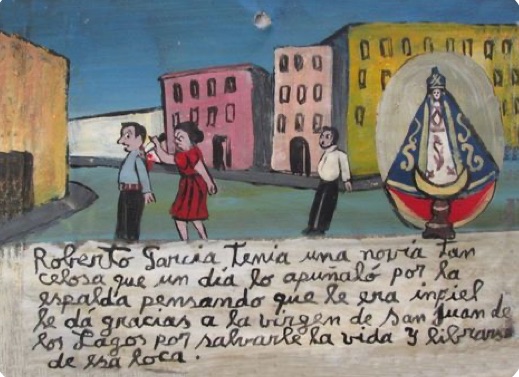 Roberto Garcia Tenia una novia tan
celosa que un día lo apuñaló por la
espalda pensando que le era infiel
le dá gracias a la virgen de San Juan de
los Lagos por salvarle la vida y librarse
de esa loca.